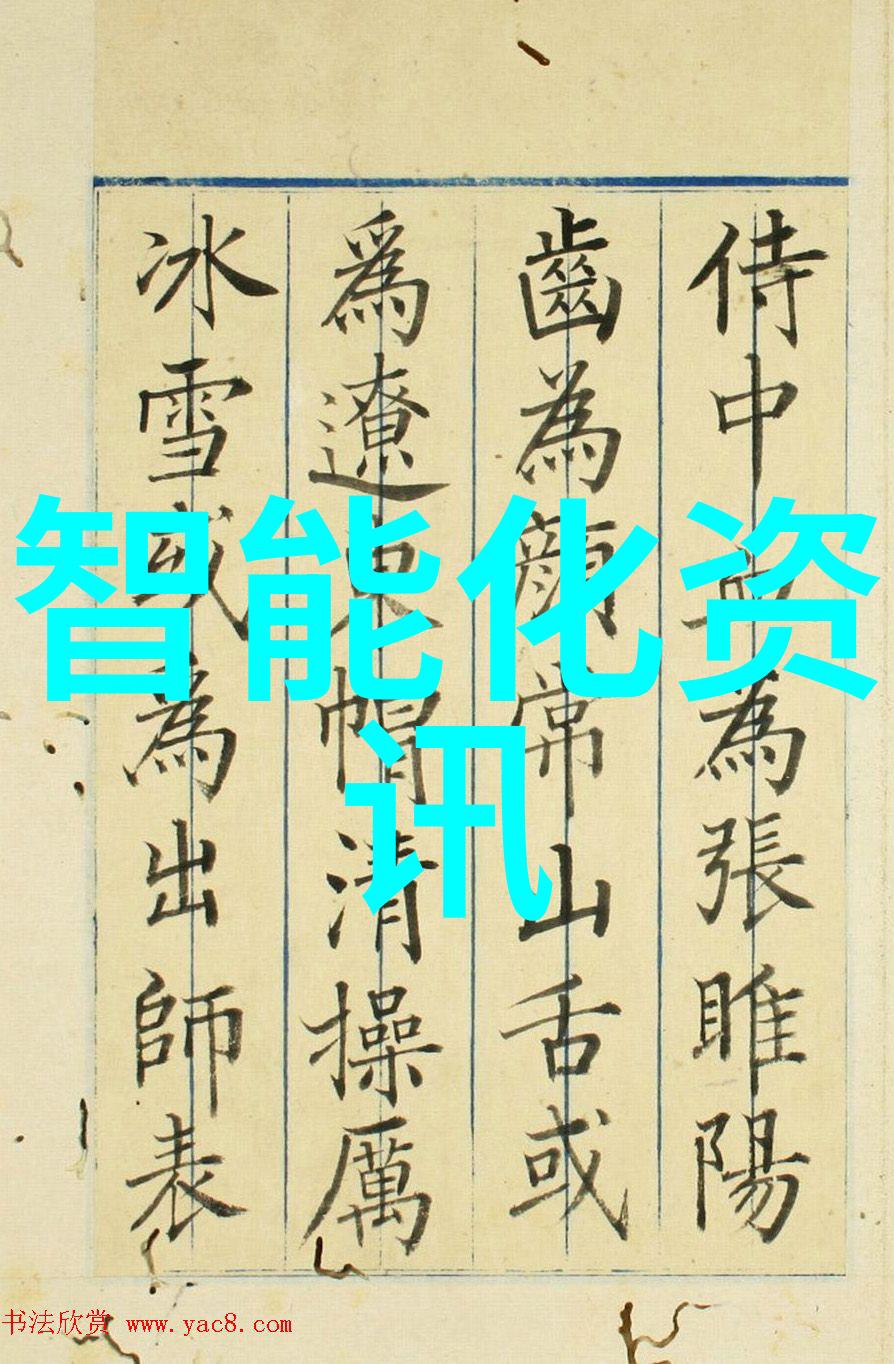 侍中血為張睢陽
齒為顔常山舌或
爲遼東帽清操厲
冰雪或為出師表
智能化资
讯
书法欣赏 www.yac8.com